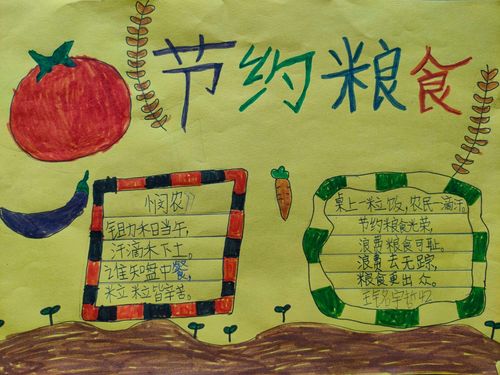 节约粮食
悯农
锄禾日当午,
汗滴禾下土。
谁知盘中餐,
粒粒皆辛苦。
桌上一粒饭,农民一滴汗。
节约粮食光荣,
浪费粮食可耻。
浪费去无踪,
粮食更出众。